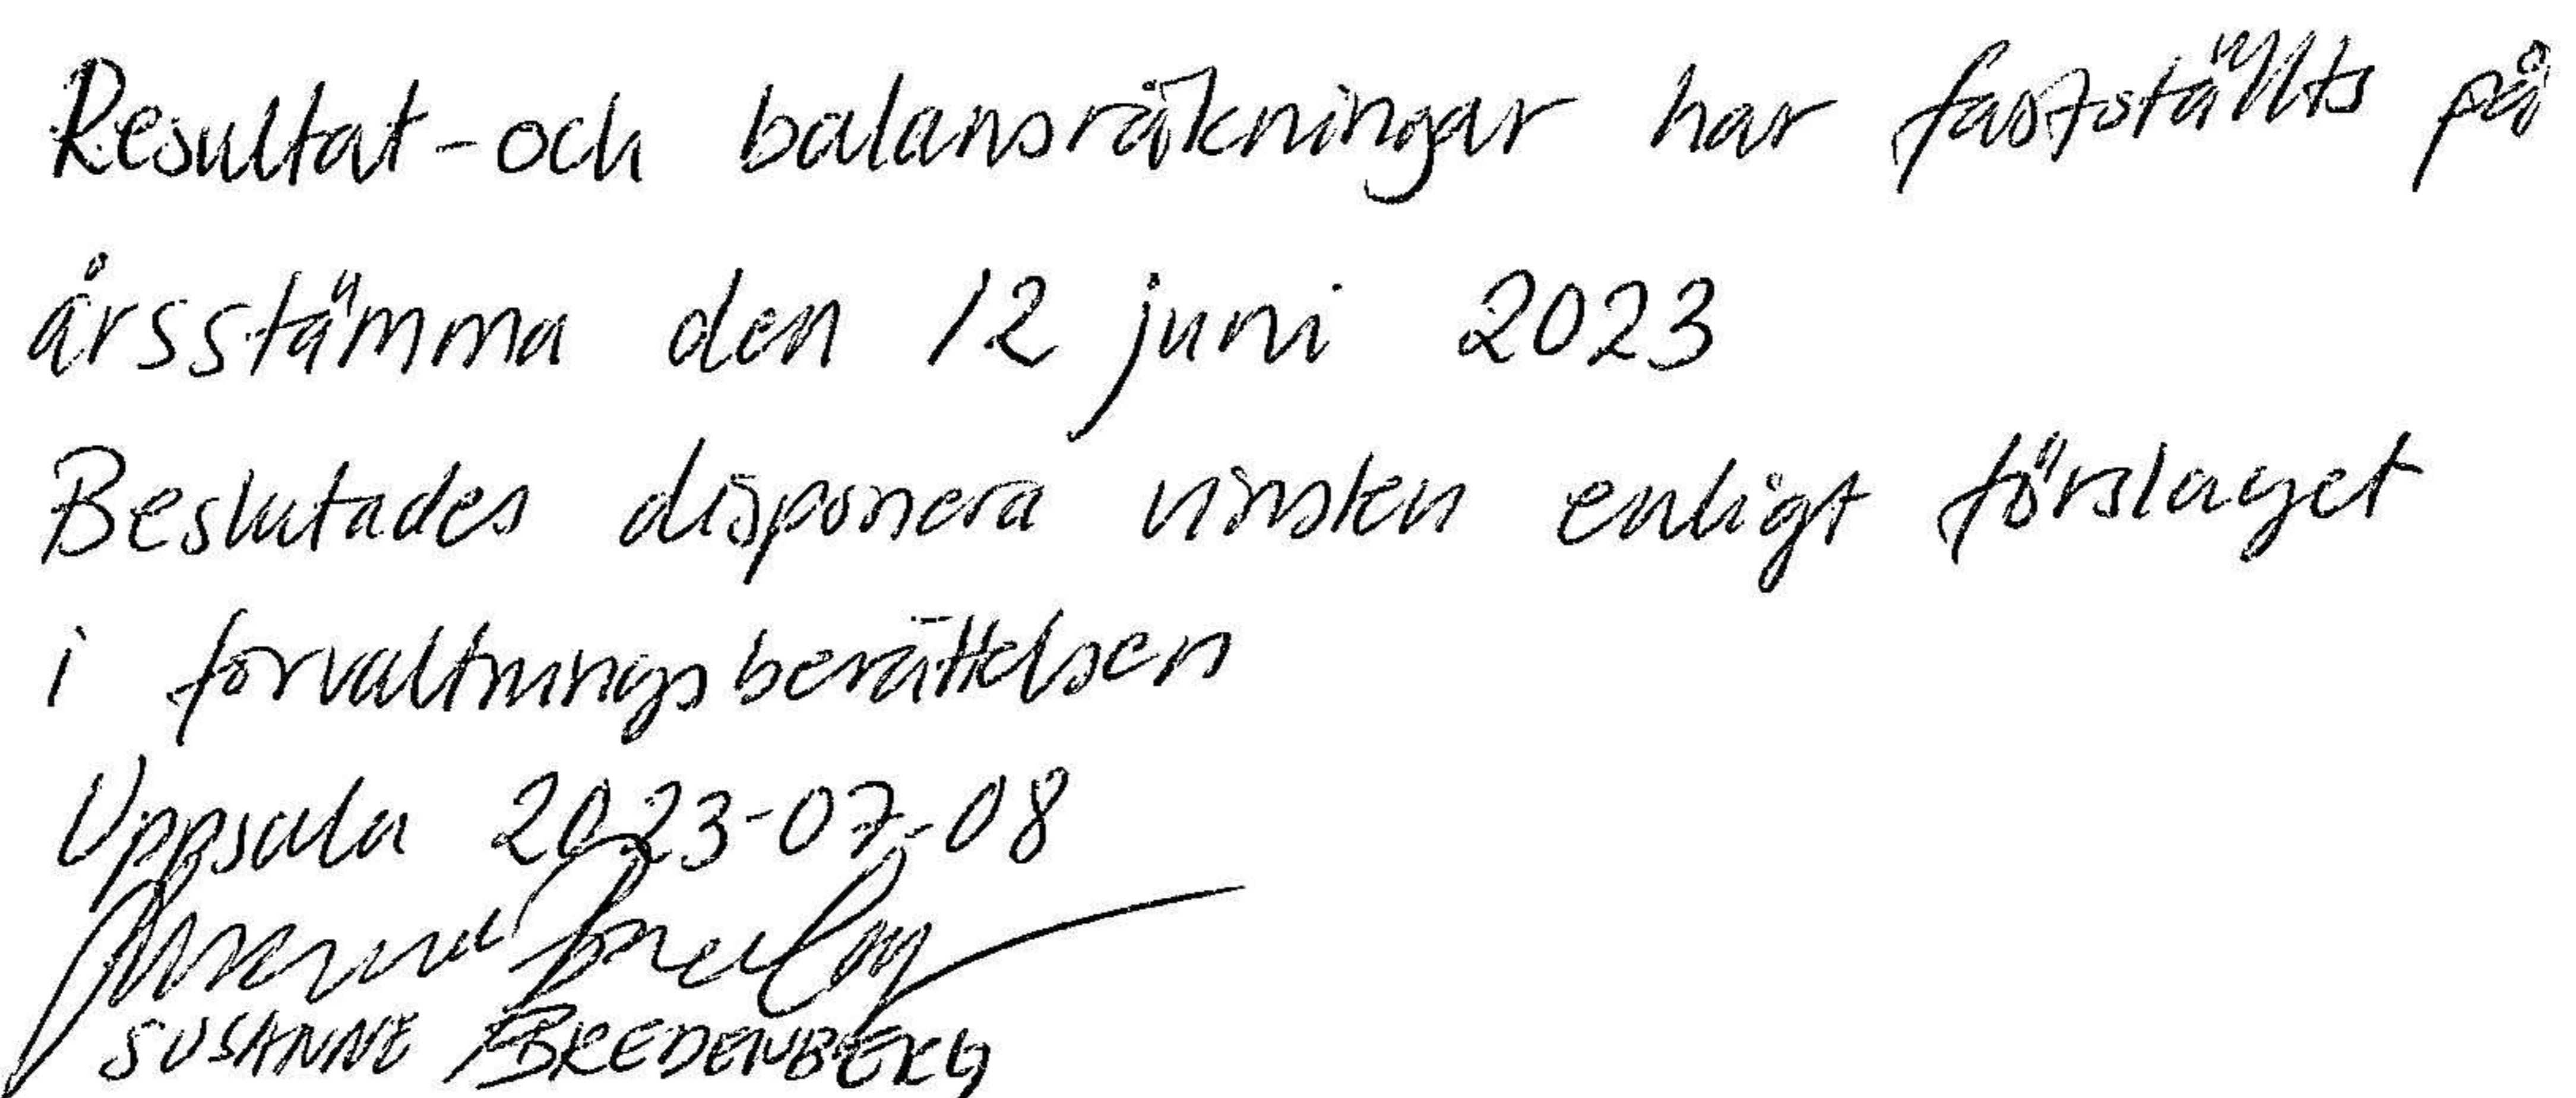 Resultat-och balansräkningar har fastställts på
årsstämma den 12 juni 2023
Beslutades disponera vinsten enligt förslaget
i förvaltningsberättelsen
Uppsala 2023-07-08
SUSANNE BREDENBERG